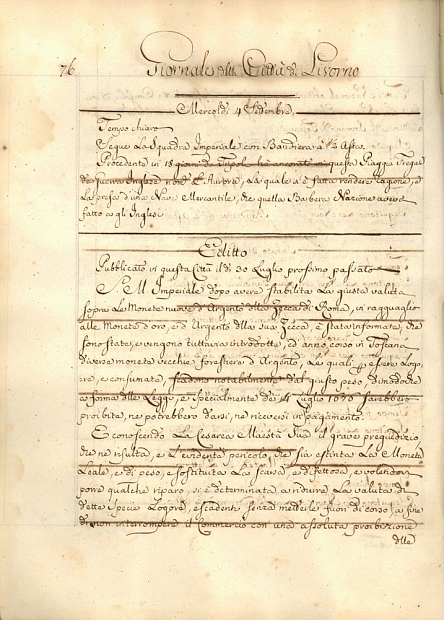 76
Giornale della Città di Livorno
Mercoldi 4 Settembre
Tempo chiaro
Segue La Squadra Imperiale con Bandiera a
Procedente in 18 giorni di Tripoli ha ancorato in questa Piaggia Fregata
da Guerra Inglese L'Aurora, La quale s'è fatta rendere ragione,
La presa d'una Nave Mercantile, che quella Barbera Nazione aveva
fatto agl'Inglesi
Editto
Pubblicato in questa Città il di 30 Luglio prossimo passato
S. M. Imperiale dopo avere stabilita La giusta valuta
sopra Le Monete nuove d'Argento della Zecca di Roma, in ragguaglio
alle Monete d'oro, e d'Argento della sua Zecca, è stata informata, che
sono state, e vengono tuttavia introdotte, ed anno corso in Toscana
diverse monete vecchie forestiere d'Argento, Le quali essere Logo:
re, e consumate, scadono notabilmente dal giusto peso, dimodoche
a forma delle Leggi, e specialmente de 4 Luglio 1670 sarebbero
proibite, ne potrebbero darsi, ne riceversi in pagamento.
E conoscendo La Cesarea Maestà Sua il grave pregiudizio
che ne risulta, e L'evidente pericolo, che sia estinta La Moneta
Leale, e di peso, e sostituita La scarsa, e difettosa, e volendo
porre qualche riparo, si è determinata a ridurre La valuta di
dette Specie Logore, e scadenti, senza metterle fuori di corso, a fine
di non interrompere il Commercio con una assoluta proibizione
delle